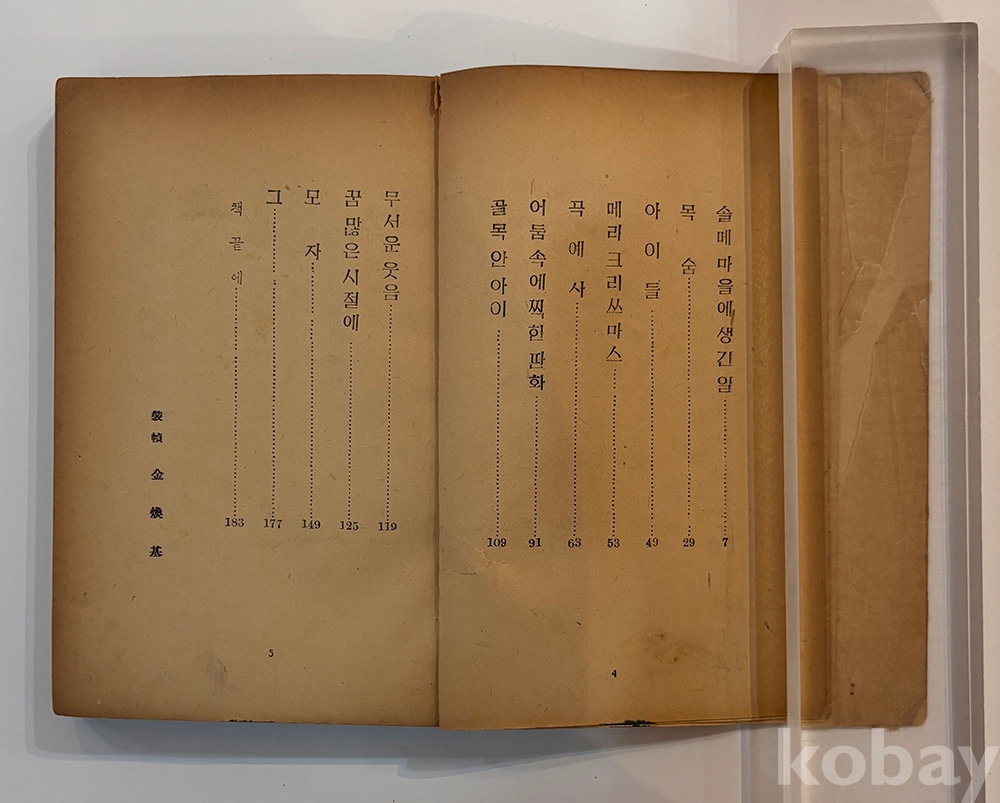 솔메마을에생긴일 7
목숨 29
아이들 49
메리크리쓰마스 53
곡예사 63
어둠속에찍힌판화 91
골목안아이 109
4
무서운웃음 119
꿈많은시절에 125
모자 149
그 177
책끝에 183
裝幀 金煥基
5
kobay